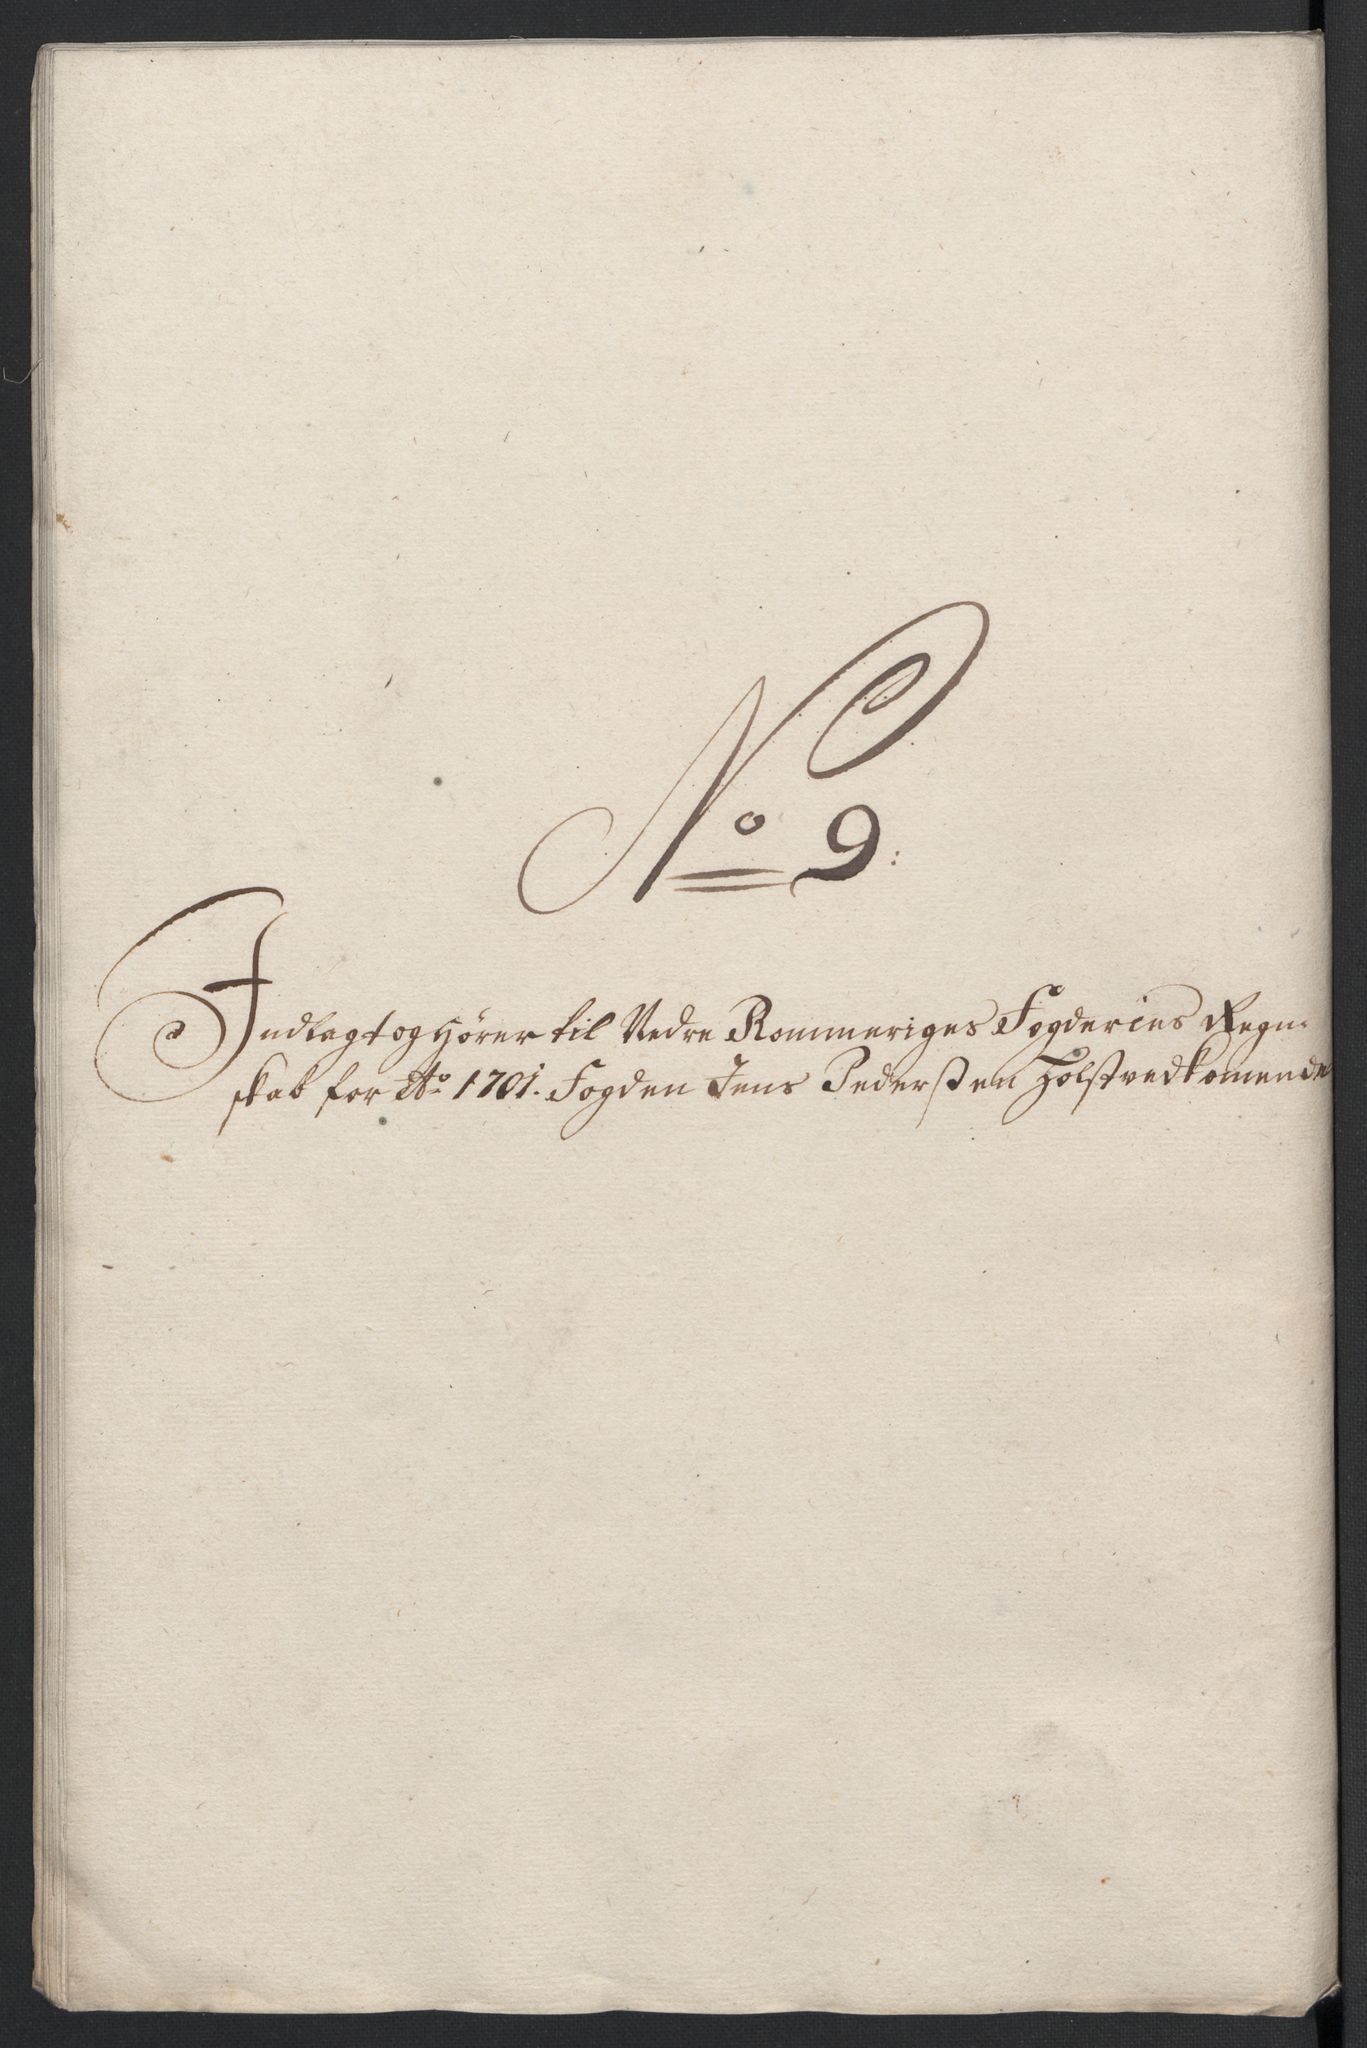 No 9:
Indlagt og Hører til Nedre Rommeriges Fogderies Regn-
skab for Ao 1701. Fogden Jens Pederßen Holst vedkomende